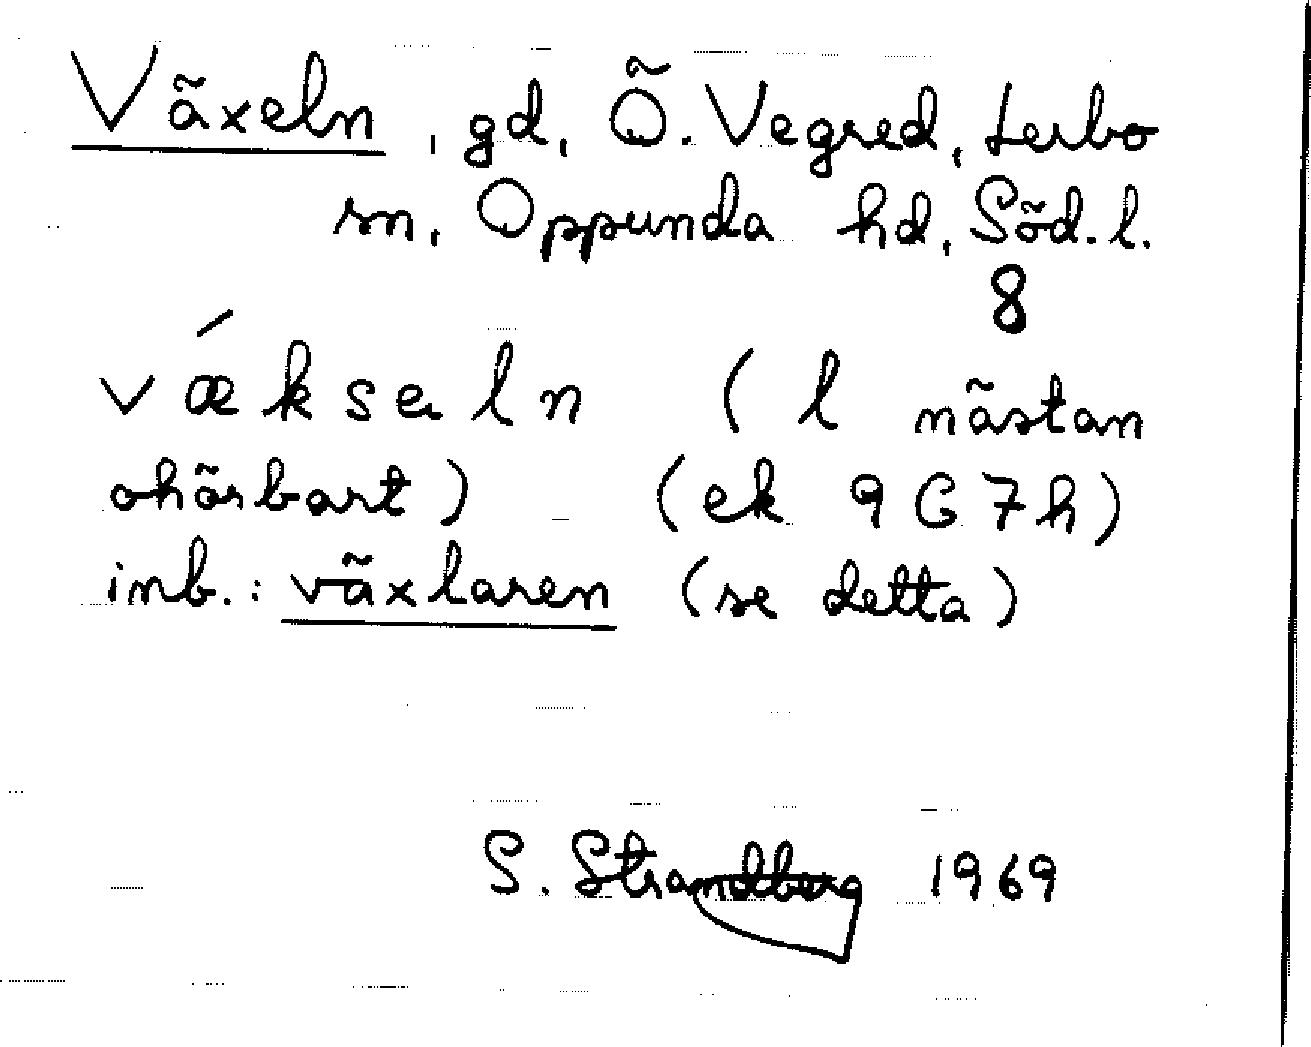 Växeln, gd, Ö. Vegred, Lerbo
sn, Oppunda hd, Söd. l.
8
vǽkseln (l nästan
ohörbart) (ek 9G7h)
inb.: växlaren (se detta)
S. Strandberg 1969